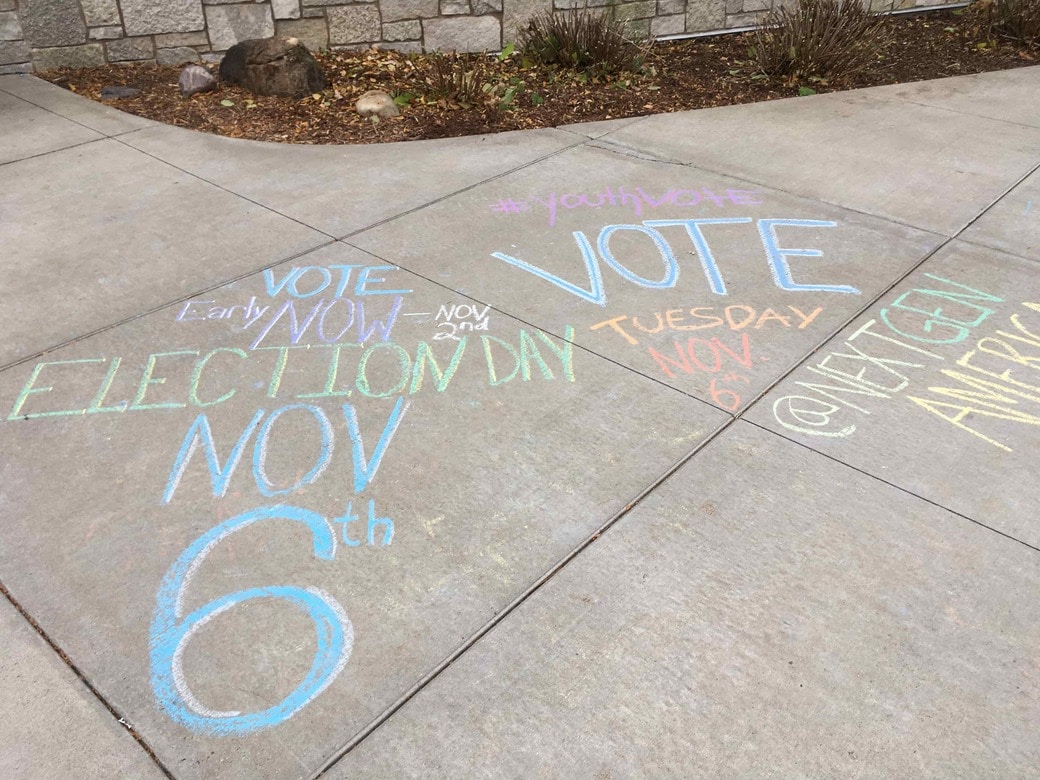 VOTE
Early NOW - NOV 2nd
ELECTION DAY
NOV
6th
#YouthVOTE
VOTE
TUESDAY
NOV.
6th
@NEXTGEN
AMERICA